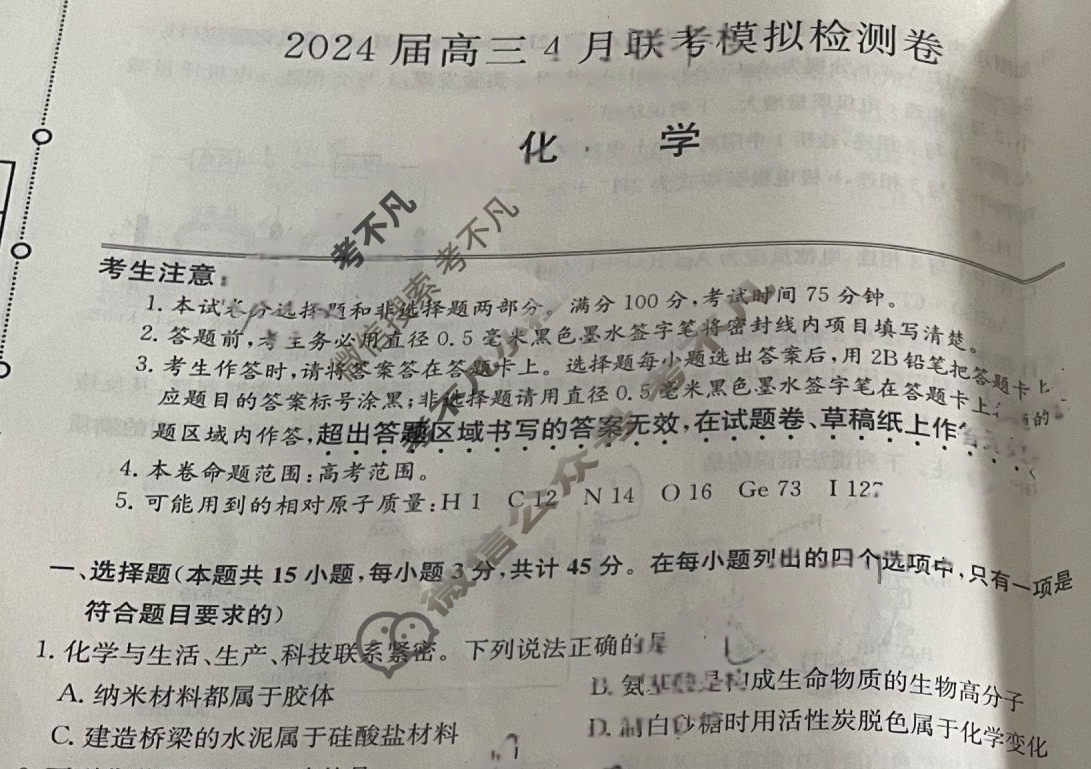 2024届高三4月联考模拟检测卷
化 学
考生注意：
1. 本试卷分选择题和非选择题两部分。满分100分，考试时间75分钟。
2. 答题前，考生务必用直径0.5毫米黑色墨水签字笔将密封线内项目填写清楚。
3. 考生作答时，请将答案答在答题卡上。选择题每小题选出答案后，用2B铅笔把答题卡上
应题目的答案标号涂黑；非选择题请用直径0.5毫米黑色墨水签字笔在答题卡上 的
题区域内作答，超出答题区域书写的答案无效，在试题卷、草稿纸上作
4. 本卷命题范围：高考范围。
5. 可能用到的相对原子质量：H 1 C 12 N 14 O 16 Ge 73 I 127
一、选择题（本题共15小题，每小题3分，共计45分。在每小题列出的四个选项中，只有一项是
符合题目要求的）
1. 化学与生活、生产、科技联系紧密。下列说法正确的是
A. 纳米材料都属于胶体
B. 氨基酸是构成生命物质的生物高分子
C. 建造桥梁的水泥属于硅酸盐材料
D. 制白砂糖时用活性炭脱色属于化学变化
考不凡
微信搜索 考不凡
微信公众号